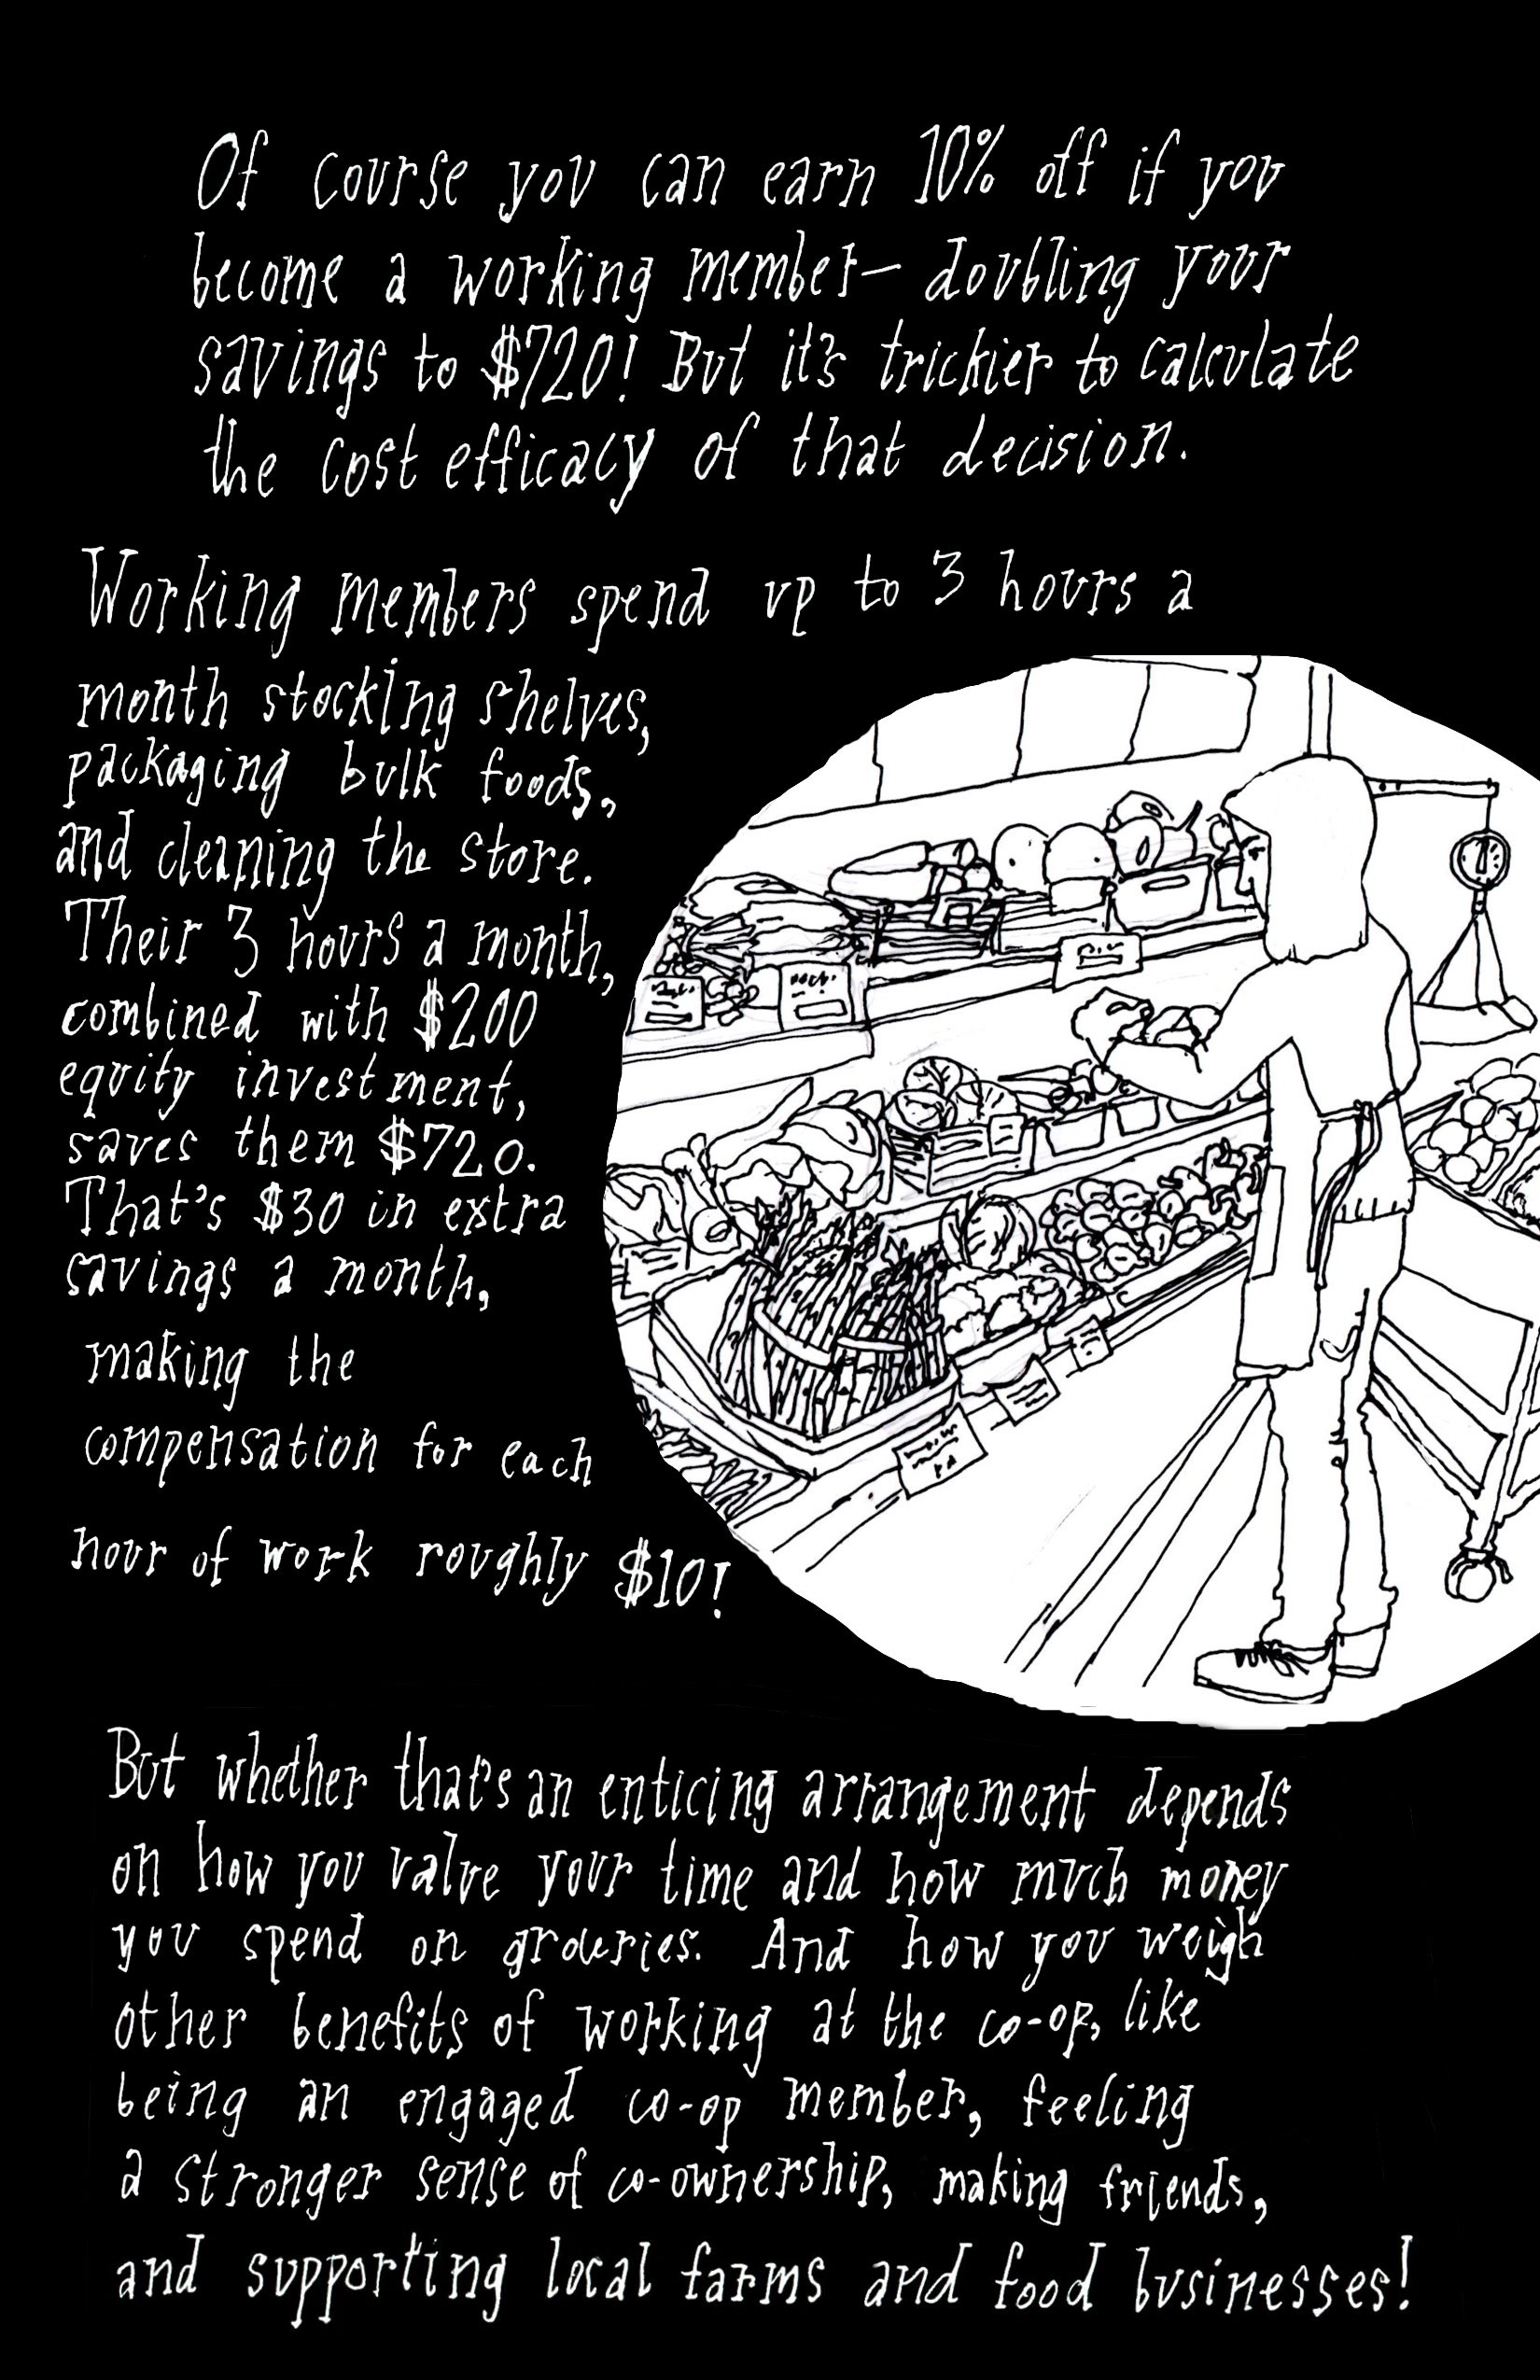 Of course you can earn 10% off if you
become a working member— doubling your
savings to $720! But it's trickier to calculate
the cost efficacy of that decision.
Working members spend up to 3 hours a
month stocking shelves,
packaging bulk foods,
and cleaning the store.
Their 3 hours a month,
combined with $200
equity investment,
saves them $720.
That's $30 in extra
savings a month,
making the
compensation for each
hour of work roughly $10!
But whether that's an enticing arrangement depends
on how you value your time and how much money
you spend on groceries. And how you weigh
other benefits of working at the co-op, like
being an engaged co-op member, feeling
a stronger sense of co-ownership, making friends,
and supporting local farms and food businesses!